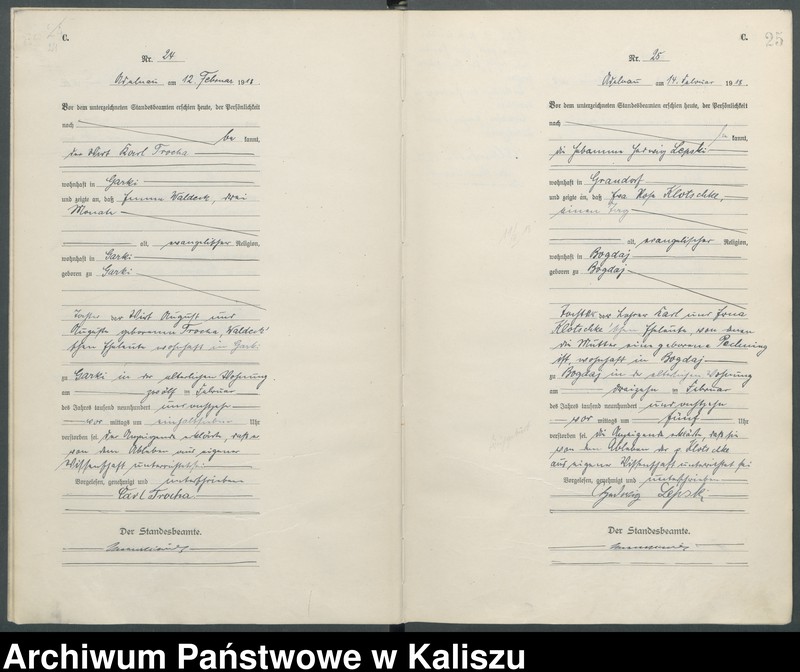 C.
Nr. 24
Adelnau am 12. Februar 1918
Vor dem unterzeichneten Standesbeamten erschien heute, der Persönlichkeit
nach
be kannt,
der Wirt Karl Trocha
wohnhaft in Garki
und zeigte an, daß Emma Waldeck, drei
Monate
alt, evangelischer Religion,
wohnhaft in Garki
geboren zu Garki
Tochter der Wirt August und
Auguste geborenen Trocha, Waldeck'
schen Eheleute wohnhaft in Garki
zu Garki in der elterlichen Wohnung
am zwölf ten Februar
des Jahres tausend neunhundert und achtzehn
vor mittags um Uhr
verstorben sei. Der Anzeigende erklärte, daß er
von dem Ableben aus eigener
Wissenschaft unterrichtet sei
Vorgelesen, genehmigt und unterschrieben
Carl Trocha
Der Standesbeamte.
C.
25
Nr. 25
Adelnau am 14. Februar 1918.
Vor dem unterzeichneten Standesbeamten erschien heute, der Persönlichkeit
nach
be kannt,
die Hebamme Hedwig Lepski
wohnhaft in Grandorf
und zeigte an, daß Eva Rosa Klotschke,
einen Tag
alt, evangelischer Religion,
wohnhaft in Bogdaj
geboren zu Bogdaj
Tochter der Karl und Erna
Klotschke 'schen Eheleute, von denen
die Mutter eine geborene
ist, wohnhaft in Bogdaj
zu Bogdaj in der elterlichen Wohnung
am dreizehn ten Februar
des Jahres tausend neunhundert und achtzehn
vor mittags um fünf Uhr
verstorben sei. Die Anzeigende erklärte, daß sie
von dem Ableben der p. Klotschke
aus eigener Wissenschaft unterrichtet sei
Vorgelesen, genehmigt und unterschrieben
Hedwig Lepski
Der Standesbeamte.
Archiwum Państwowe w Kaliszu